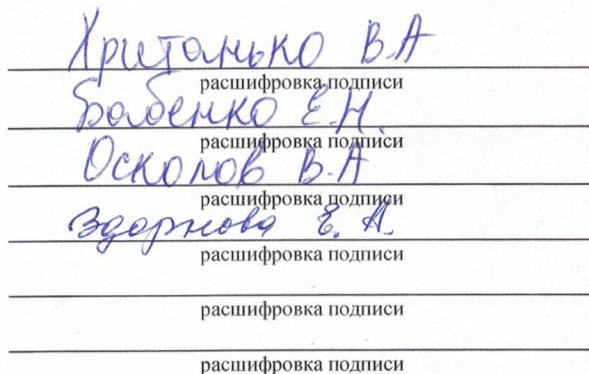 Хританько В.А
расшифровка подписи
Бабенко Е.Н.
расшифровка подписи
Осколов В.А
расшифровка подписи
Здорнова Е.А.
расшифровка подписи
расшифровка подписи
расшифровка подписи